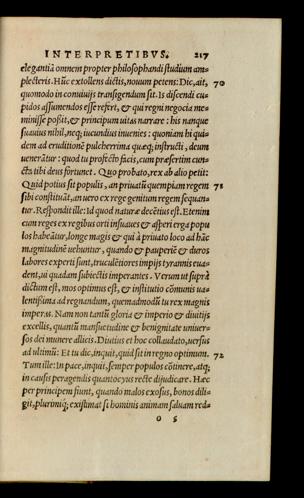 INTERPRETIBVS. 217
elegantiā omnem propter philosophandi studium am=
plecteris. Hūc extollens dictis, nouum petens: Dic, ait, 70
quomodo in conuiuijs transigendum sit. Is discendi cu=
pidos assumendos esse refert, & qui regni negocia me=
minisse possit, & principum uitas narrare: his nanque
suauius nihil, neq; iucundius inuenies: quoniam hi qui=
dem ad eruditionē pulcherrima quæq; instructi, deum
uenerātur: quod tu profecto facis, cum præsertim cun=
cta tibi deus fortunet. Quo probato, rex ab alio petit:
Quid potius sit populis, an priuatū quempiam regem 71
sibi constituāt, an uero ex rege genitum regem sequan=
tur. Respondit ille: Id quod naturæ decētius est. Etenim
cum reges ex regibus orti insuaues & asperi erga popu
los habeātur, longe magis & qui à priuato loco ad hāc
magnitudinē uehuntur, quando & pauperiē & duros
labores experti sunt, truculētiores impijs tyrannis eua=
dent, ui quadam subiectis imperantes. Verum ut suprà
dictum est, mos optimus est, & institutio cōmunis ua=
lentissima ad regnandum, quemadmodū tu rex magnis
imperas. Nam non tantū gloria & imperio & diuitijs
excellis, quantū mansuetudine & benignitate uniuer=
sos dei munere allicis. Diutius et hoc collaudato, uersus
ad ultimū: Et tu dic, inquit, quid sit in regno optimum. 72
Tum ille: In pace, inquit, semper populos cōtinere, atq;
in causis peragendis quantocyus recte dijudicare. Hæc
per principem fiunt, quando malos exosus, bonos dili=
git, plurimiq; existimat si hominis animam saluam red=
o 5